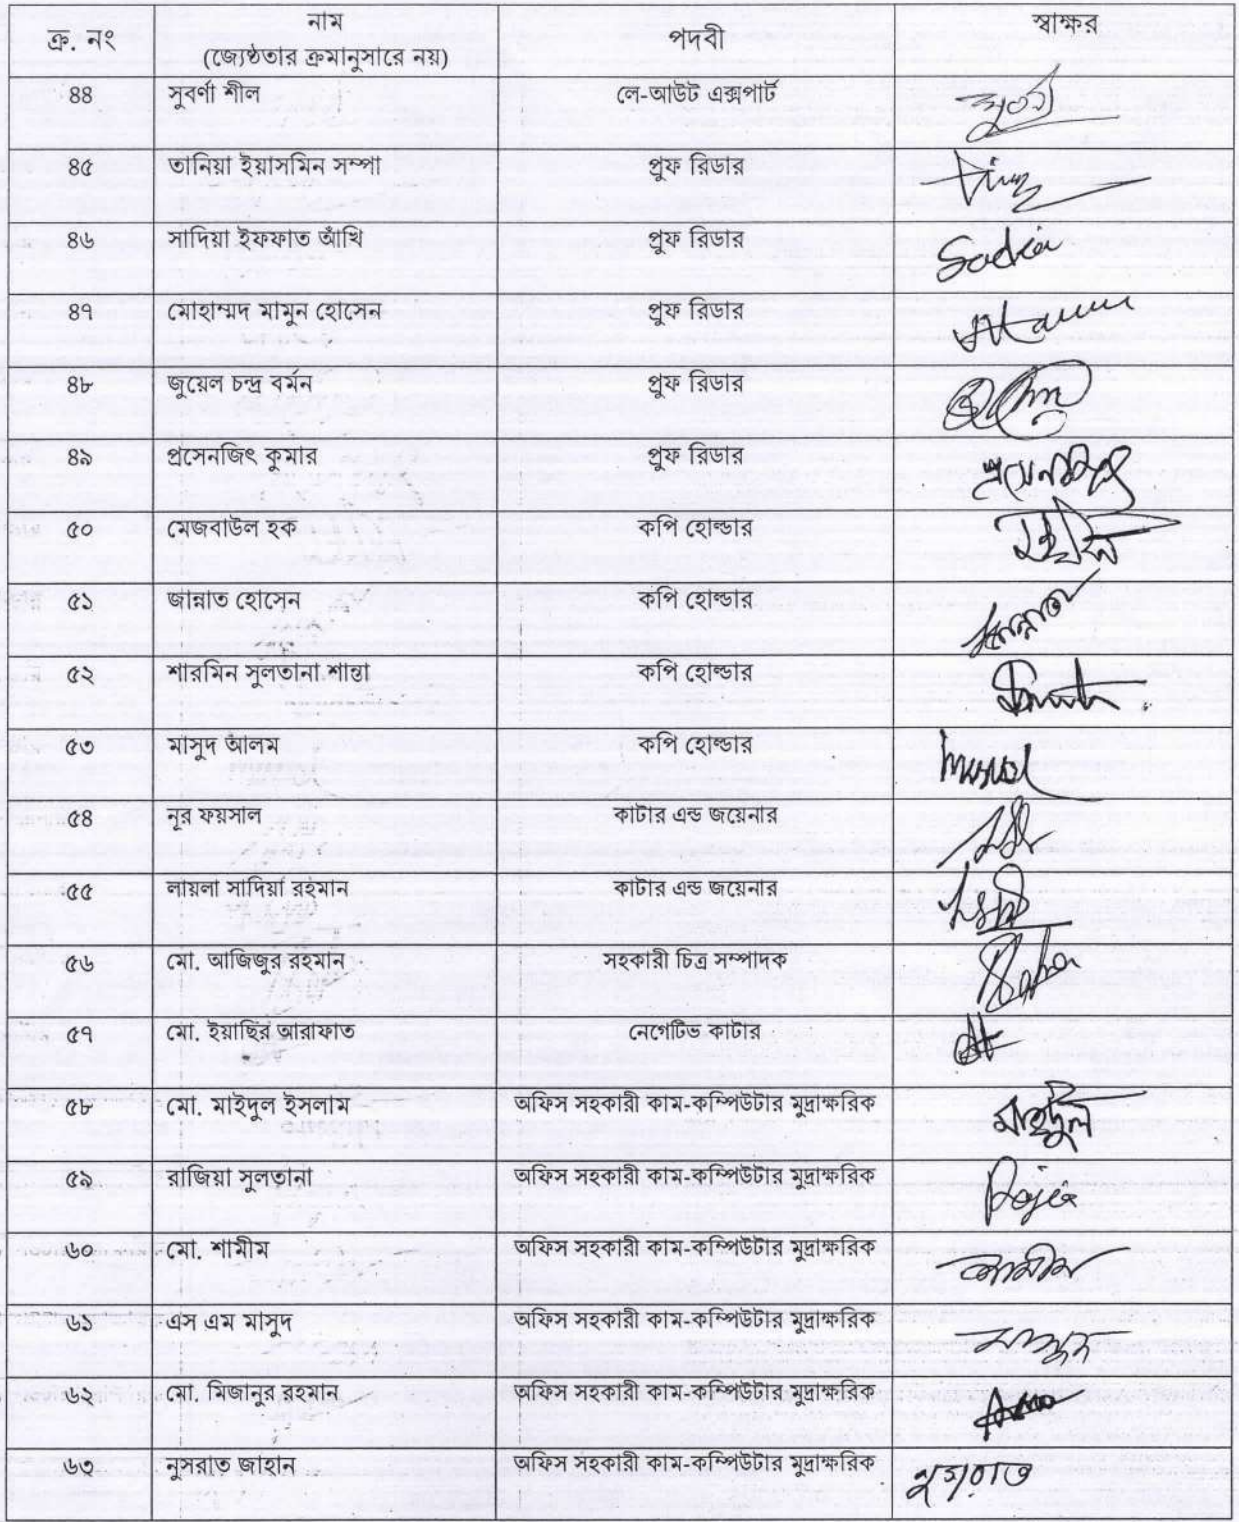 ক্র. নং নাম পদবী স্বাক্ষর
(জ্যেষ্ঠতার ক্রমানুসারে নয়)
৪৪ সুবর্ণা শীল লে-আউট এক্সপার্ট
৪৫ তানিয়া ইয়াসমিন সম্পা প্রুফ রিডার
৪৬ সাদিয়া ইফফাত আঁখি প্রুফ রিডার Sadia
৪৭ মোহাম্মদ মামুন হোসেন প্রুফ রিডার
৪৮ জুয়েল চন্দ্র বর্মন প্রুফ রিডার
৪৯ প্রসেনজিৎ কুমার প্রুফ রিডার প্রসেনজিৎ
৫০ মেজবাউল হক কপি হোল্ডার
৫১ জান্নাত হোসেন কপি হোল্ডার জান্নাত
৫২ শারমিন সুলতানা শান্তা কপি হোল্ডার
৫৩ মাসুদ আলম কপি হোল্ডার
৫৪ নূর ফয়সাল কাটার এন্ড জয়েনার
৫৫ লায়লা সাদিয়া রহমান কাটার এন্ড জয়েনার
৫৬ মো. আজিজুর রহমান সহকারী চিত্র সম্পাদক
৫৭ মো. ইয়াছির আরাফাত নেগেটিভ কাটার
৫৮ মো. মাইদুল ইসলাম অফিস সহকারী কাম-কম্পিউটার মুদ্রাক্ষরিক মাইদুল
৫৯ রাজিয়া সুলতানা অফিস সহকারী কাম-কম্পিউটার মুদ্রাক্ষরিক Rajia
৬০ মো. শামীম অফিস সহকারী কাম-কম্পিউটার মুদ্রাক্ষরিক শামীম
৬১ এস এম মাসুদ অফিস সহকারী কাম-কম্পিউটার মুদ্রাক্ষরিক
৬২ মো. মিজানুর রহমান অফিস সহকারী কাম-কম্পিউটার মুদ্রাক্ষরিক
৬৩ নুসরাত জাহান অফিস সহকারী কাম-কম্পিউটার মুদ্রাক্ষরিক নুসরাত